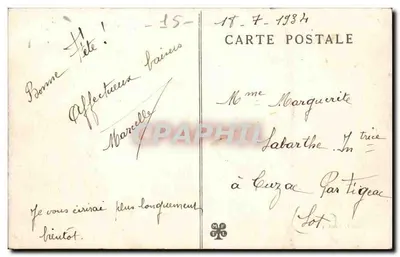 - 15 -
18-7-1934
CARTE POSTALE
Bonne fête !
Affectueux baisers
Marcelle
Je vous écrirai plus longuement
bientôt.
Mme Marguerite
Labarthe Intrice
à Cuzac Par Figeac
(Lot)
CARTE-PHARTILE